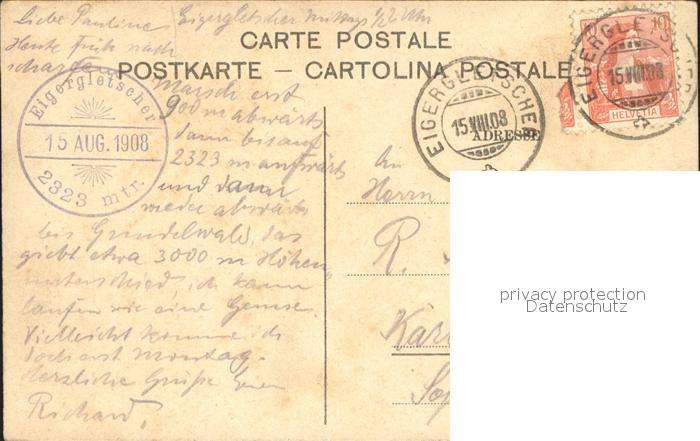 Liebe Pauline, Eigergletscher Mittag 1/2 2 Uhr
CARTE POSTALE
Heute früh nach
POSTKARTE — CARTOLINA POSTALE
Marsch erst
900 m abwärts
dann bis auf
2323 m aufwärts
und dann
wieder abwärts
bis Grindelwald, das
giebt etwa 3000 m Höhen
unterschied, ich kann
laufen wie eine Gemse.
Vielleicht komme ich
doch erst Montag.
Herzliche Grüße
Richard.
Eigergletscher
15 AUG. 1908
2323 mtr.
EIGERGLETSCHER
15.VIII.08
ADRESSE
EIGERGLETSCHER
15.VIII.08
10
HELVETIA
An
Herrn
R.
privacy protection
Datenschutz